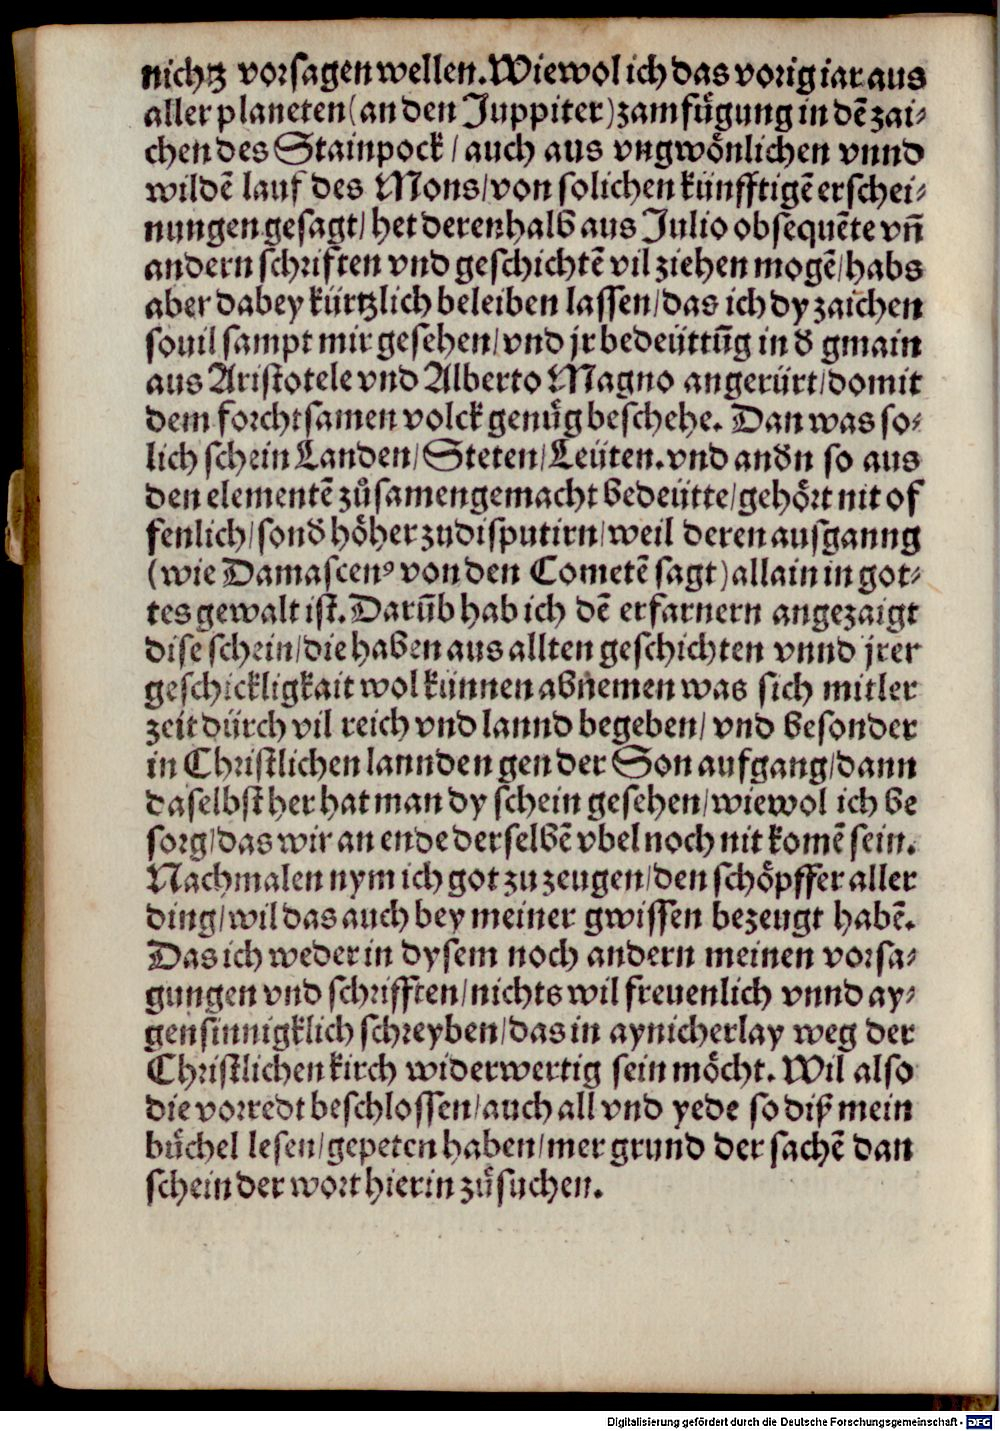 nichtz vorsagen wellen. Wiewol ich das vorig iar aus
aller planeten (an den Juppiter) zamfügung in dē zai-
chen des Stainpock / auch aus vngwönlichen vnnd
wildē lauf des Mons / von solichen künfftigē erschei-
nungen gesagt / het derenhalb aus Julio obsequēte vn̄
andern schriften vnd geschichtē vil ziehen mogē / habs
aber dabey kürtzlich beleiben lassen / das ich dy zaichen
souil sampt mir gesehen / vnd jr bedeüttūg in d̕ gmain
aus Aristotele vnd Alberto Magno angerürt / domit
dem forchtsamen volck genůg beschehe. Dan was so-
lich schein Landen / Steten / Leüten. vnd and̕n so aus
den elementē zůsamengemacht bedeütte / gehört nit of
fenlich / sond̕ höher zudisputirn / weil deren ausganng
(wie Damascenꝰ von den Cometē sagt) allain in got-
tes gewalt ist. Darūb hab ich dē erfarnern angezaigt
dise schein / die haben aus allten geschichten vnnd jrer
geschickligkait wol künnen abnemen was sich mitler
zeit dürch vil reich vnd lannd begeben / vnd besonder
in Christlichen lannden gen der Son aufgang / dann
daselbst her hat man dy schein gesehen / wiewol ich be
sorg / das wir an ende der selbē vbel noch nit komē sein.
Nachmalen nym ich got zu zeugen / den schöpffer aller
ding / wil das auch bey meiner gwissen bezeugt habē.
Das ich weder in dysem noch andern meinen vorsa-
gungen vnd schrifften / nichts wil freuenlich vnnd ay-
gensinnigklich schreyben / das in aynicherlay weg der
Christlichen kirch widerwertig sein möcht. Wil also
die vorredt beschlossen / auch all vnd yede so diß mein
büchel lesen / gepeten haben / mer grund der sachē dan
schein der wort hierin zůsuchen.
Digitalisierung gefördert durch die Deutsche Forschungsgemeinschaft - DFG